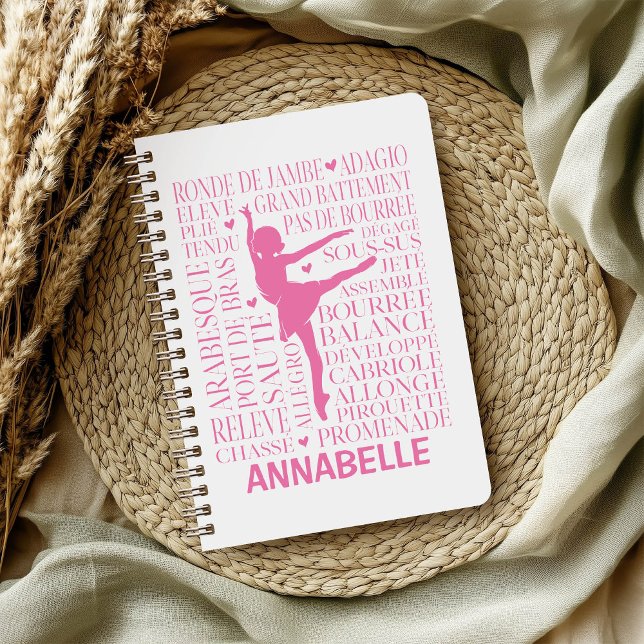 RONDE DE JAMBE ♥ ADAGIO
ELEVE ♥ GRAND BATTEMENT
PLIE
PAS DE BOURREE
TENDU
DÉGAGÉ
SOUS-SUS
JETÉ
ASSEMBLÉ
ARABESQUE
PORT DE BRAS
SAUTE
BOURREE
BALANCE
ALLEGRO
DÉVELOPPÉ
CABRIOLE
ALLONGE
RELEVE
PIROUETTE
CHASSÉ ♥ PROMENADE
ANNABELLE